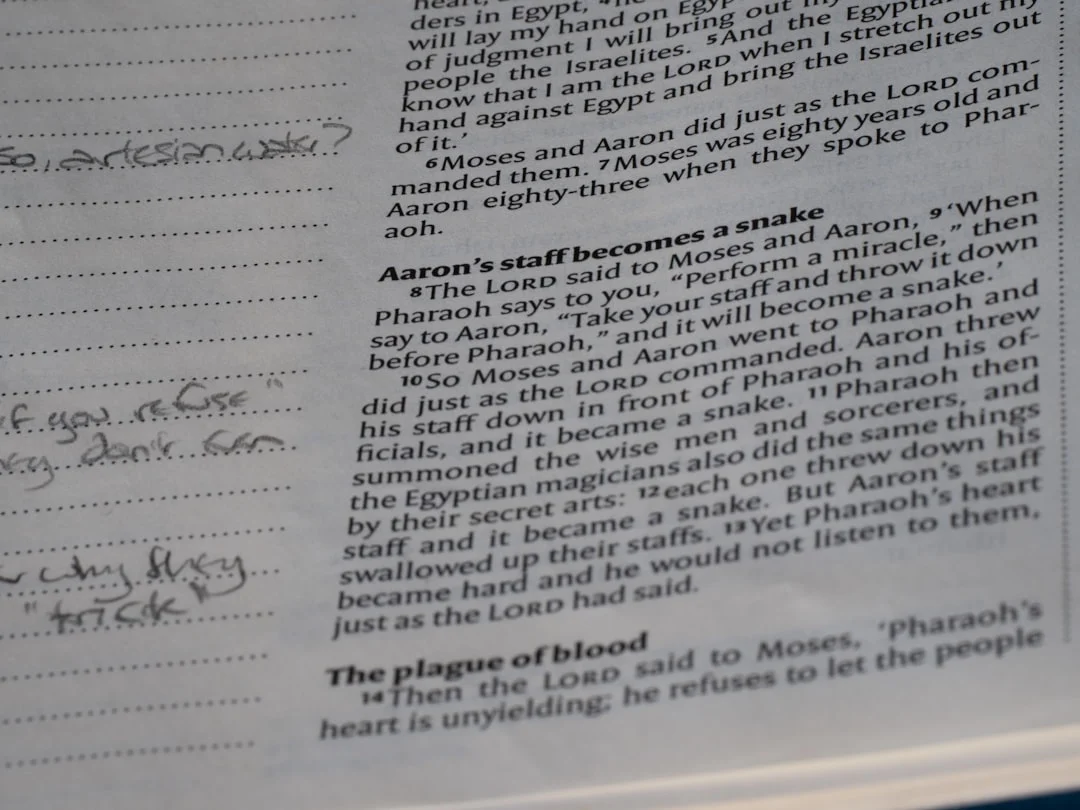 So, artesian water?
if you refuse"
they don't
why they
"trick"
heart,
ders in Egypt,
will lay my hand on Egyp
of judgment I will bring out my
people the Israelites. 5And the Egyptia
know that I am the LORD when I stretch out my
hand against Egypt and bring the Israelites out
of it.'
6Moses and Aaron did just as the LORD com-
manded them. 7Moses was eighty years old and
Aaron eighty-three when they spoke to Phar-
aoh.
Aaron's staff becomes a snake
8The LORD said to Moses and Aaron, 9'When
Pharaoh says to you, "Perform a miracle," then
say to Aaron, "Take your staff and throw it down
before Pharaoh," and it will become a snake.'
10So Moses and Aaron went to Pharaoh and
did just as the LORD commanded. Aaron threw
his staff down in front of Pharaoh and his of-
ficials, and it became a snake. 11Pharaoh then
summoned the wise men and sorcerers, and
the Egyptian magicians also did the same things
by their secret arts: 12each one threw down his
staff and it became a snake. But Aaron's staff
swallowed up their staffs. 13Yet Pharaoh's heart
became hard and he would not listen to them,
just as the LORD had said.
The plague of blood
14Then the LORD said to Moses, 'Pharaoh's
heart is unyielding; he refuses to let the people